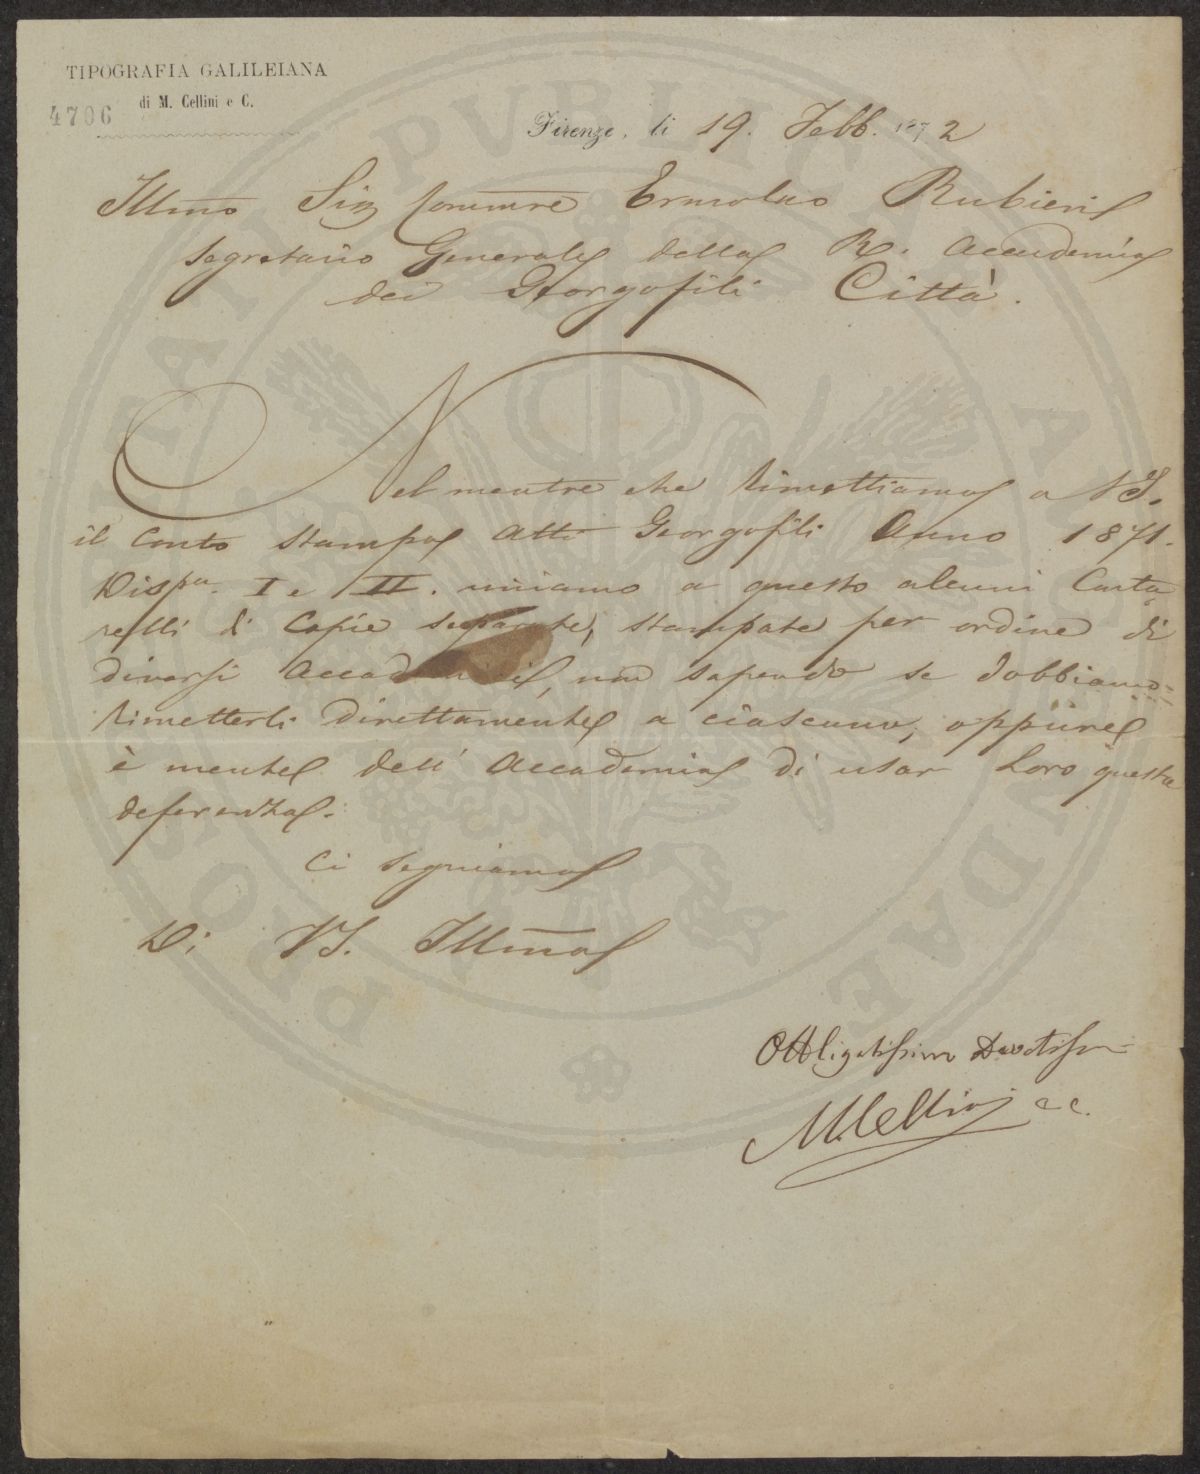 TIPOGRAFIA GALILEIANA
di M. Cellini e C.
4706
Firenze, li 19. Febb. 1872
Illmo Sig Commre Ermolao Rubieri
Segretario Generale della R. Accademia
dei Georgofili Città.
Nel mentre che rimettiamo a VS.
il Conto stampa Atti Georgofili Anno 1871.
Dispa. I e II. uniamo a questo alcuni Carta
relli di Copie separate, stampate per ordine di
diversi Accademici, non sapendo se dobbiamo
rimetterli direttamente a ciascuno, oppure
è mente dell' Accademia di usar Loro questa
deferenza.
Ci segniamo
Di VS. Illma
Obbligatissimi Devotissi
M. Cellini e C.
PROSPERITATI PVBLICAE AVGENDAE